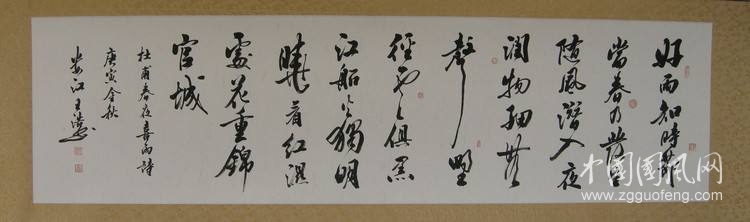 好雨知時節
當春乃發生
随風潛入夜
潤物細無
聲野
徑雲俱黑
江船火獨明
曉看紅濕
處花重錦
官城
杜甫春夜喜雨詩
庚寅金秋
婁江王浩书
中国国风网
www.zgguofeng.com